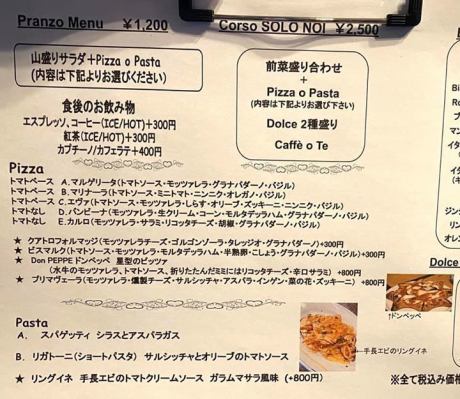 Pranzo Menu ￥1,200
山盛りサラダ+Pizza o Pasta
(内容は下記よりお選びください)
食後のお飲み物
エスプレッソ、コーヒー(ICE/HOT)+300円
紅茶(ICE/HOT)+300円
カプチーノ/カフェラテ+400円
Corso SOLO NOI ￥2,500
前菜盛り合わせ
+
Pizza o Pasta
(内容は下記よりお選び下さい)
Dolce 2種盛り
Caffè o Te
Pizza
トマトベース A.マルゲリータ(トマトソース・モッツァレラ・グラナパダーノ・バジル)
トマトベース B.マリナーラ(トマトソース・ミニトマト・ニンニク・オレガノ・バジル)
トマトベース C.エヴァ(トマトソース・モッツァレラ・しらす・オリーブ・ズッキーニ・ニンニク・バジル)
トマトなし D.バンビーナ(モッツァレラ・生クリーム・コーン・モルタデッラハム・グラナパダーノ・バジル)
トマトなし E.カルロ(モッツァレラ・サラミ・リコッタチーズ・胡椒・グラナパダーノ・バジル)
★ クアトロフォルマッジ(モッツァレラチーズ・ゴルゴンゾーラ・タレッジオ・グラナパダーノ)+300円
★ ビスマルク(トマトソース・モッツァレラ・モルタデッラハム・半熟卵・こしょう・グラナパダーノ・バジル)+300円
★ Don PEPPE ドンペッペ 星型のピッツァ
(水牛のモッツァレラ、トマトソース、折りたたんだミミにはリコッタチーズ・辛口サラミ) +800円
★ プリマヴェーラ(モッツァレラ・燻製チーズ・サルシッチャ・アスパラ・インゲン・菜の花・ズッキーニ) +800円
Pasta
A. スパゲッティ シラスとアスパラガス
B. リガトーニ(ショートパスタ) サルシッチャとオリーブのトマトソース
★ リングイネ 手長エビのトマトクリームソース ガラムマサラ風味 (+800円)
←手長エビのリングイネ
↑ドンペッペ
Dolce
※全て税込み価格